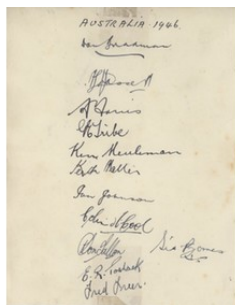 AUSTRALIA - 1946
Don Bradman
A Morris
G Tribe
Ken Meuleman
Keith Miller
Ian Johnson
Colin McCool
Sid Barnes
Don Tallon
E. R. Toshack
Fred Freer.